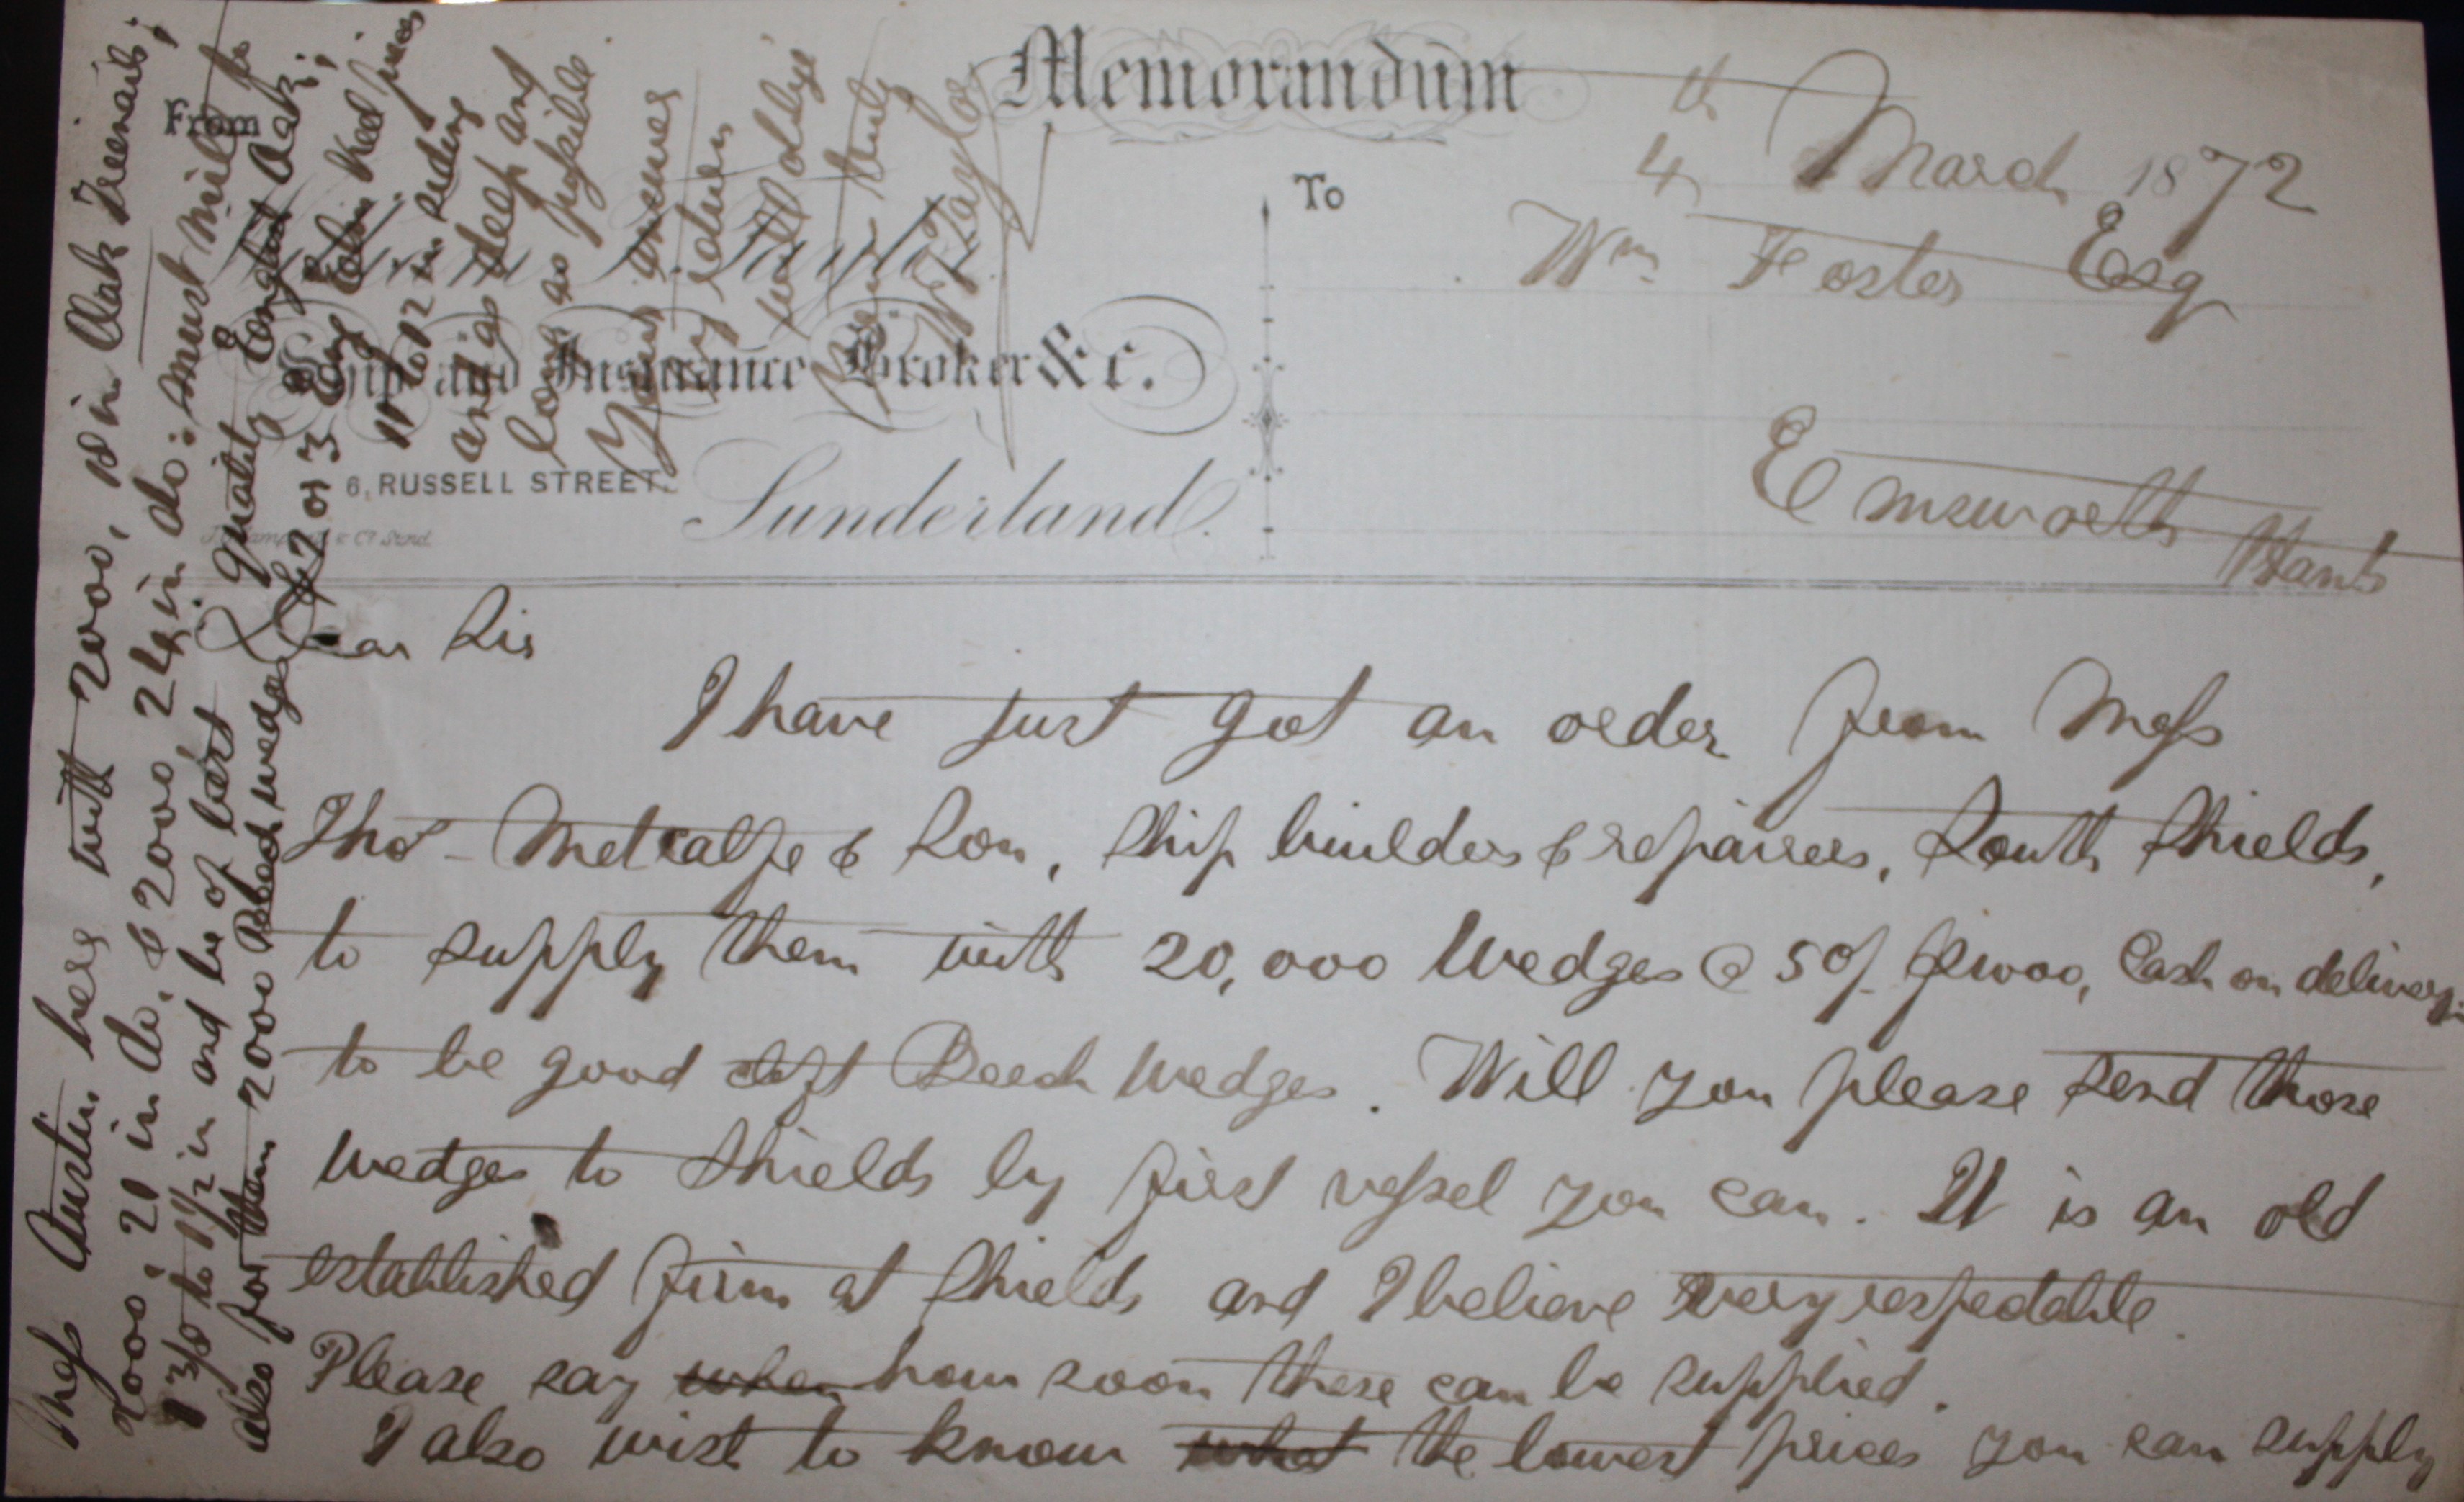 Memorandum
From
4th March 1872
To
Wm Foster Esq
Ship and Insurance Broker &c.
6, RUSSELL STREET.
Sunderland.
Emsworth Hants
Dear Sir
I have just got an order from Mess
Thos Metcalfe & Son, Ship builders & repairers, South Shields,
to supply them with 20,000 Wedges @ 50/- 1000, Cash on delivery
to be good cleft Beech Wedges. Will you please send those
wedges to Shields by first vessel you can. It is an old
established firm at Shields and I believe very respectable.
Please say when how soon these can be supplied.
I also wish to know what the lowest prices you can supply
Mess Austin here with 2000, 18 in Oak Treenails;
2000, 21 in do. & 2000 24 in do: must mill
1 3/8 to 1 1/2 in and be of best quality English Oak;
also for them 2000 wedges
& 2 or 3 Elm Ked pieces
11 to 12 in siding
and as deep and
long as possible
Your answer
by return
will oblige
Yours truly
W T Taylor